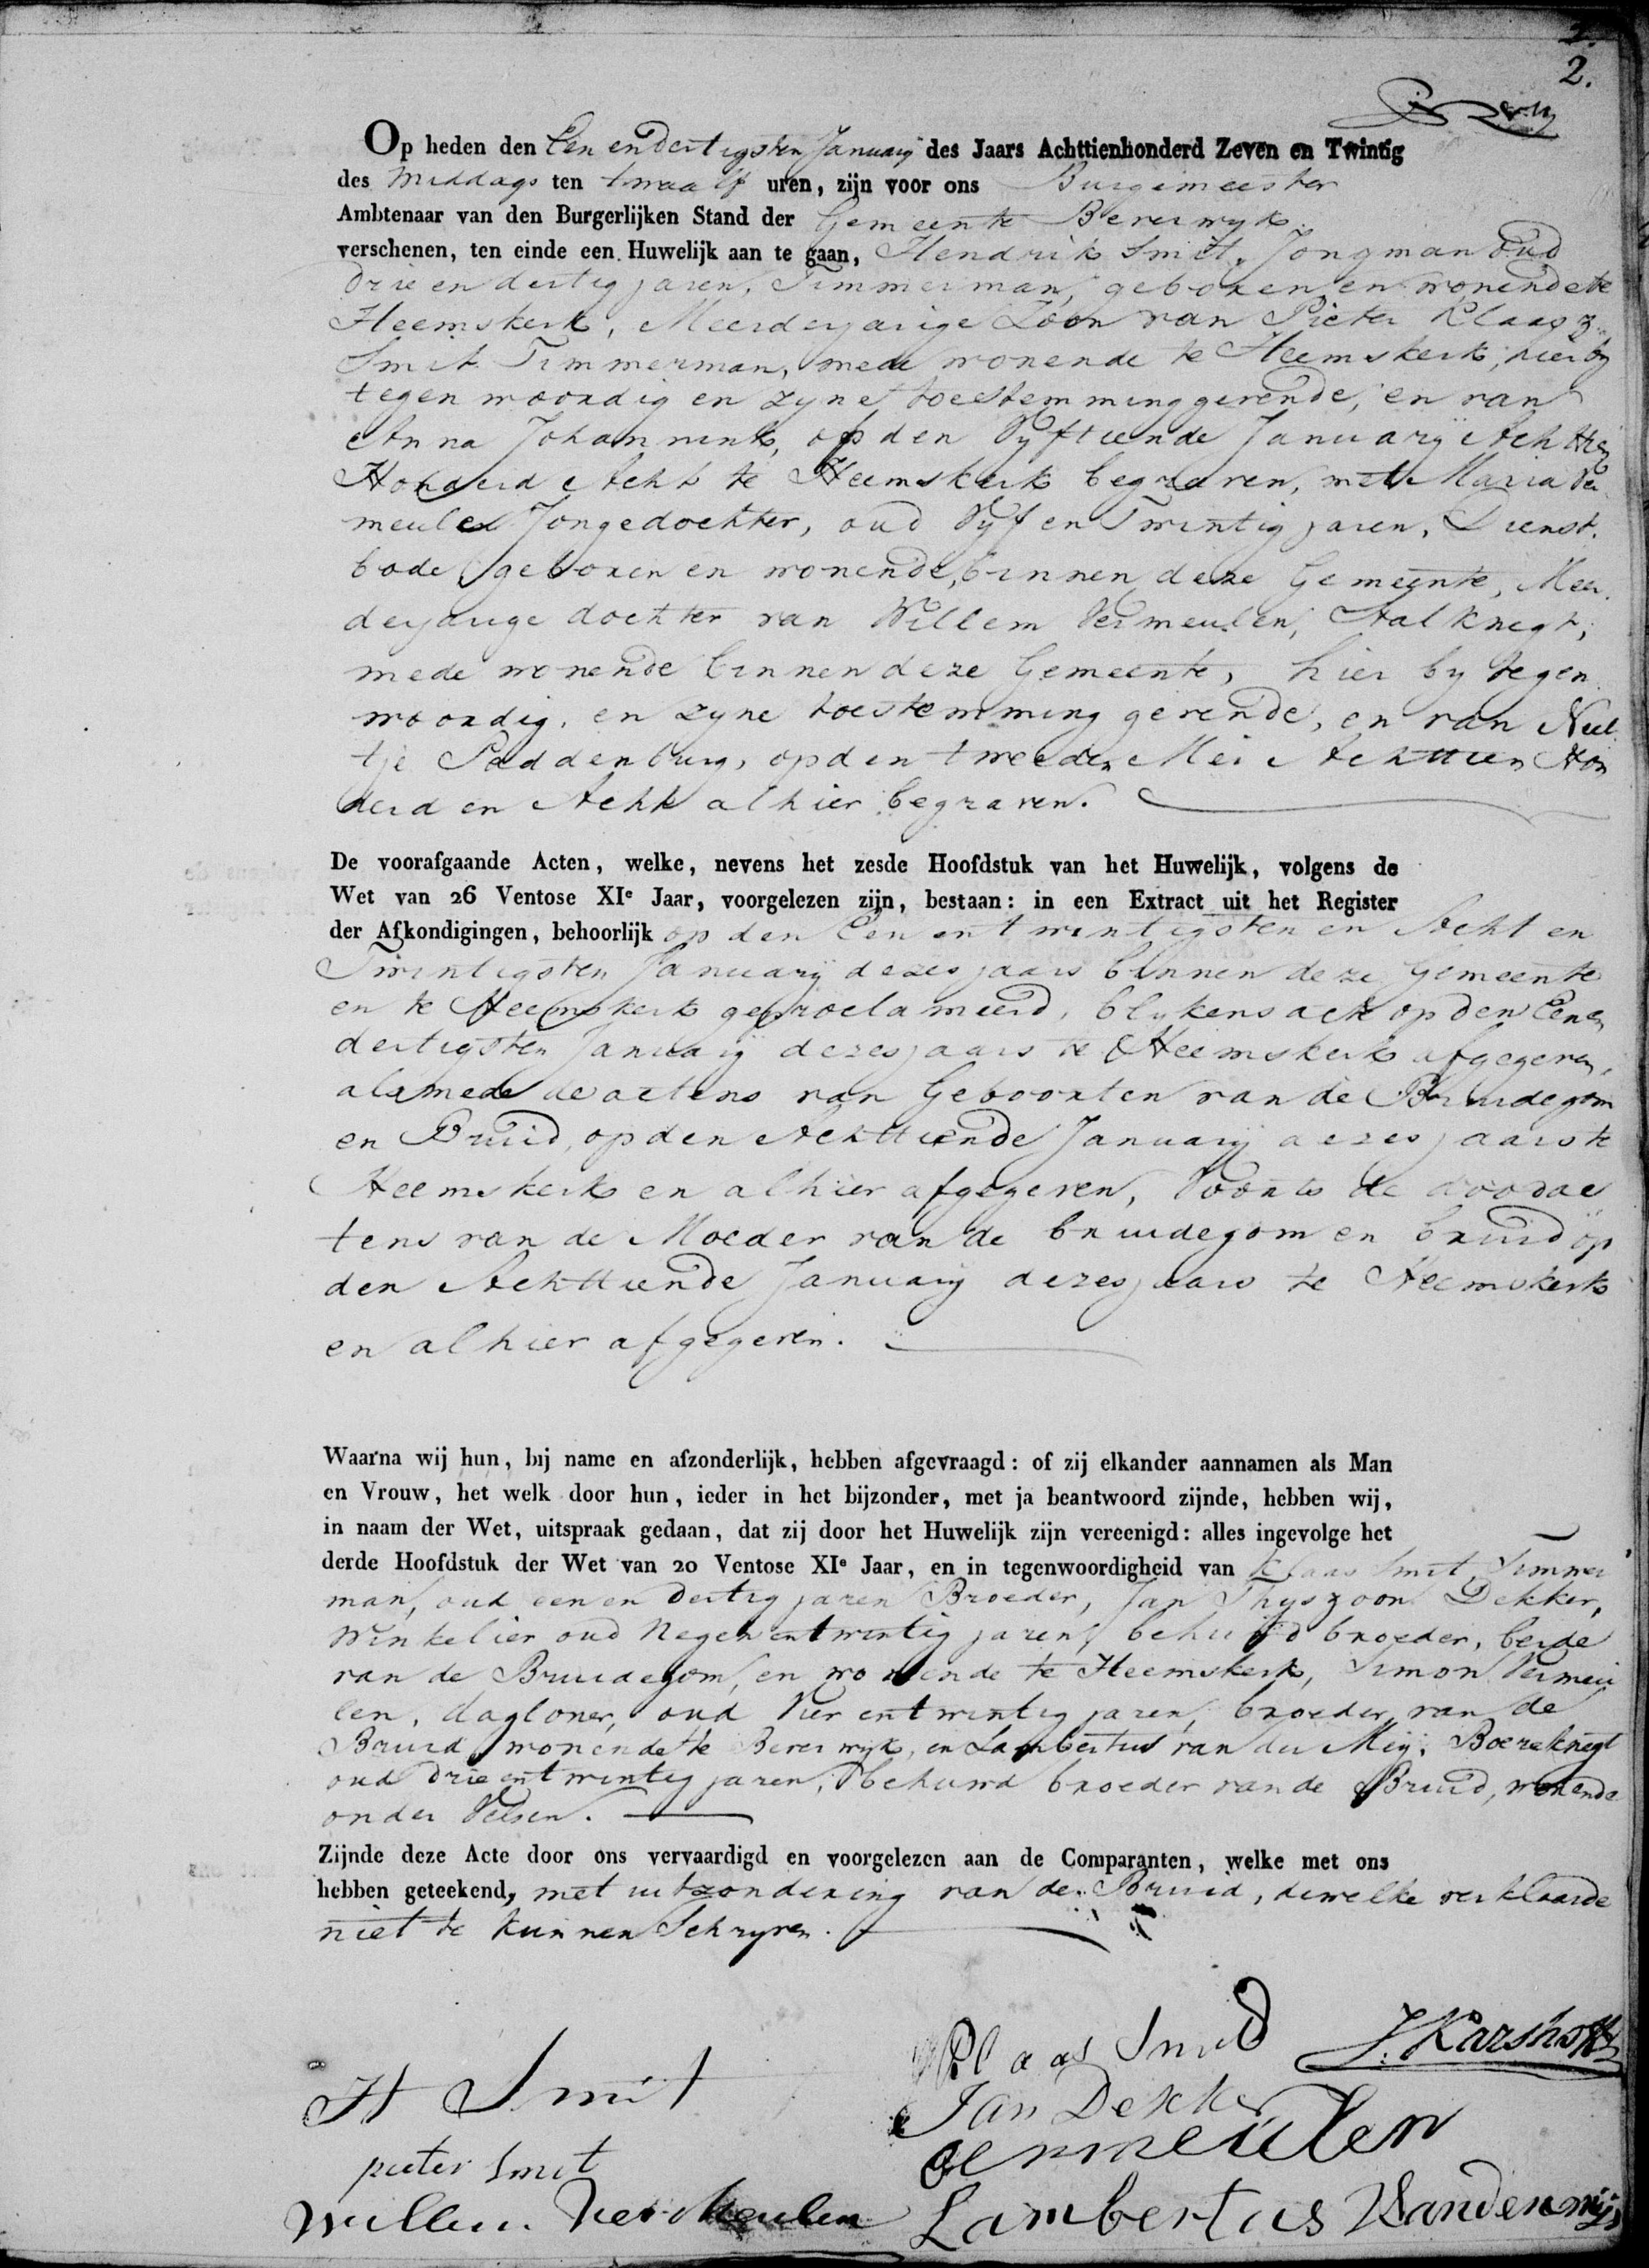 2.
Op heden den Een en dertigsten January des Jaars Achttienhonderd Zeven en Twintig
des Middags ten twaalf uren, zijn voor ons Burgemeester
Ambtenaar van den Burgerlijken Stand der Gemeente Beverwyk
verschenen, ten einde een Huwelijk aan te gaan, Hendrik Smit, Jongman oud
drie en dertig jaren, Timmerman, geboren en wonende te
Heemskerk, Meerderjarige Zoon van Pieter Klaasz.
Smit Timmerman, mede wonende te Heemskerk, hier by
tegenwoordig en zyne toestemming gevende, en van
Anna Johannink, op den Vyftiende January Achttien
Honderd Acht te Heemskerk begraven, met Maria Ver
meulen Jongedochter, oud Vyf en Twintig jaren, Dienst.
bode geboren en wonende, binnen deze Gemeente, Meer.
derjarige dochter van Willem Vermeulen, Stalknegt,
mede wonende binnen deze Gemeente, hier by tegen
woordig, en zyne toestemming gevende, en van Neel
tje Paddenburg, op den tweeden Mei Achttien Hon
derd en Acht alhier begraven.
De voorafgaande Acten, welke, nevens het zesde Hoofdstuk van het Huwelijk, volgens de
Wet van 26 Ventose XIe Jaar, voorgelezen zijn, bestaan: in een Extract uit het Register
der Afkondigingen, behoorlijk op den Een en twintigsten en Acht en
Twintigsten January dezes jaars binnen deze Gemeente
en te Heemskerk geproclameerd, blykens acte op den Een en
dertigsten January dezes jaars te Heemskerk afgegeven,
alsmede de actens van Geboorten van de Bruidegom
en Bruid, op den Achttiende January dezes jaars te
Heemskerk en alhier afgegeven, Voorts de doodac
tens van de Moeder van de bruidegom en bruid op
den Achttiende January dezes jaars te Heemskerk
en alhier afgegeven.
Waarna wij hun, bij name en afzonderlijk, hebben afgevraagd: of zij elkander aannamen als Man
en Vrouw, het welk door hun, ieder in het bijzonder, met ja beantwoord zijnde, hebben wij,
in naam der Wet, uitspraak gedaan, dat zij door het Huwelijk zijn vereenigd: alles ingevolge het
derde Hoofdstuk der Wet van 20 Ventose XIe Jaar, en in tegenwoordigheid van Klaas Smit, Timmer
man, oud een en dertig jaren Broeder, Jan Thyszoon Dekker,
Winkelier oud Negen en twintig jaren, behuwd broeder, beide
van de Bruidegom, en wonende te Heemskerk, Simon Vermeu
len, dagloner, oud Vier en twintig jaren, broeder van de
Bruid, wonende te Beverwyk, en Lambertus van der Mey, Boereknegt
oud drie en twintig jaren, behuwd broeder van de Bruid, wonende
onder Velsen.
Zijnde deze Acte door ons vervaardigd en voorgelezen aan de Comparanten, welke met ons
hebben geteekend, met uitzondering van de Bruid, dewelke verklaarde
niet te kunnen Schryven.
Klaas Smid J. Karshoff
H Smit
Jan Dekker
Vermeulen
pieter Smit
Willem Vermeulen Lambertus Vandermij